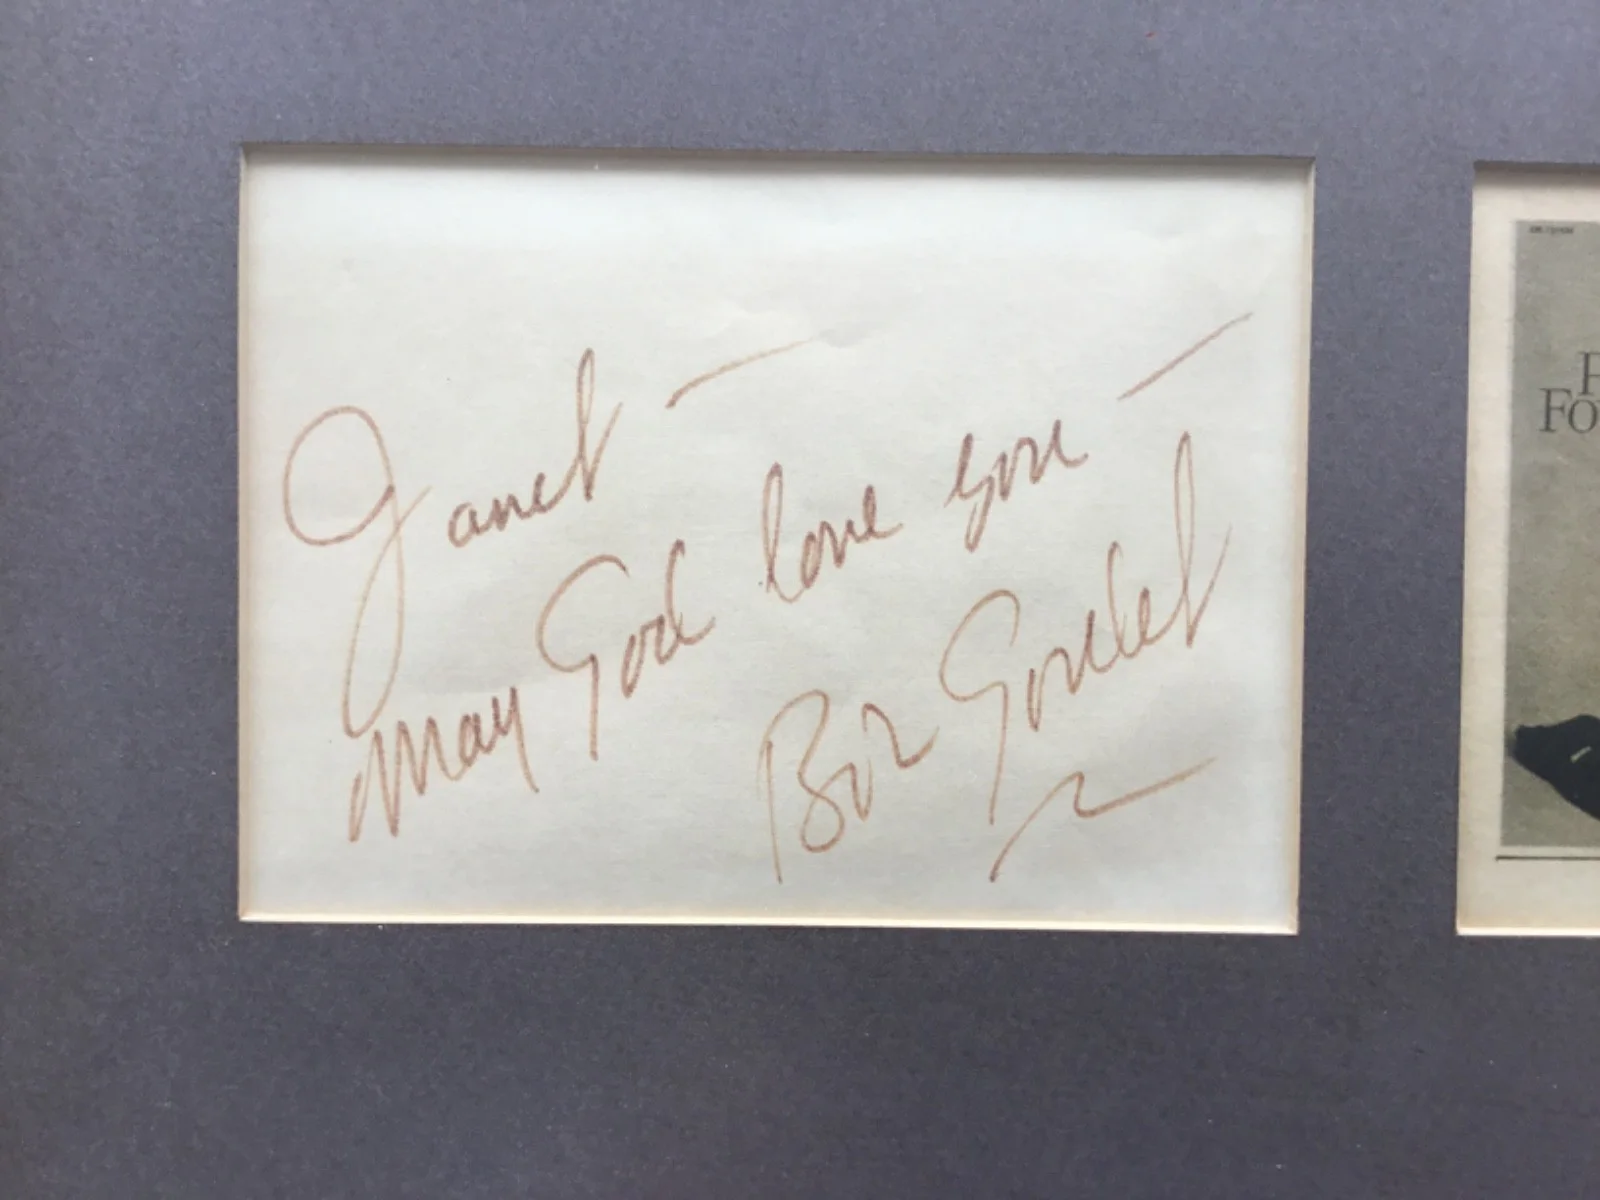 Janet —
May God love you —
Bob Goulet
Fo